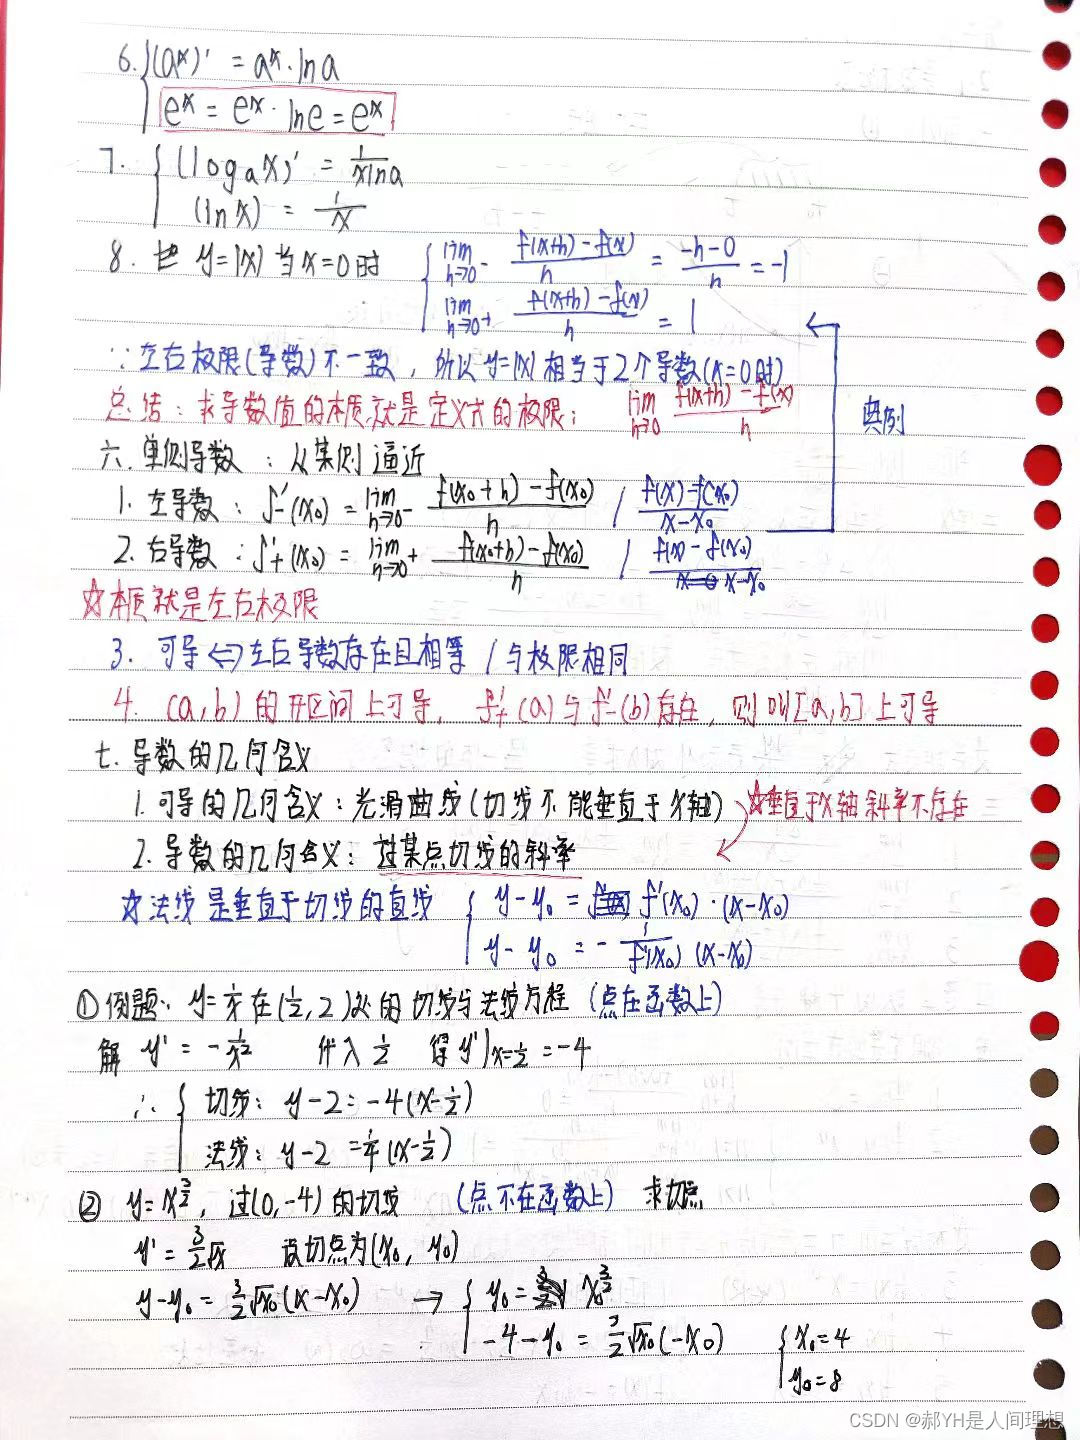 6. { (aˣ)' = aˣ·lna
eˣ = eˣ·lne = eˣ
7. { (logₐx)' = 1/(xlna)
(lnx) = 1/x
8. y=|x| 当x=0时 { lim h→0⁻ (f(x+h)-f(x))/h = (-h-0)/h = -1
lim h→0⁺ (f(x+h)-f(x))/h = 1
∵左右极限(导数)不一致，所以y=|x|相当于2个导数(x=0时)
总结：求导数值的本质就是定义式的极限； lim h→0 (f(x+h)-f(x))/h
典例
六.单侧导数：从某侧逼近
1. 左导数：f'₋(x₀) = lim h→0⁻ (f(x₀+h)-f(x₀))/h / (f(x)-f(x₀))/(x-x₀)
2. 右导数：f'₊(x₀) = lim h→0⁺ (f(x₀+h)-f(x₀))/h / (f(x)-f(x₀))/(x-x₀)
☆本质就是左右极限
3. 可导⇔左右导数存在且相等 / 与极限相同
4. (a,b)的开区间上可导，f'₊(a)与f'₋(b)存在，则叫[a,b]上可导
七.导数的几何含义
1.可导的几何含义：光滑曲线(切线不能垂直于x轴) ☆垂直于x轴斜率不存在
2.导数的几何含义：过某点切线的斜率
☆法线是垂直于切线的直线 { y-y₀ = f'(x₀)·(x-x₀)
y-y₀ = -1/f'(x₀) (x-x₀)
①例题：y=1/x在(1/2,2)处的切线与法线方程 (点在函数上)
解 y' = -1/x² 代入1/2 得y'|x=1/2 = -4
∴ { 切线：y-2=-4(x-1/2)
法线：y-2=1/4(x-1/2)
② y=x^(3/2)，过(0,-4)的切线 (点不在函数上) 求切点
y'=3/2√x 设切点为(x₀, y₀)
y-y₀ = 3/2√x₀(x-x₀) → { y₀ = x₀^(3/2)
-4-y₀ = 3/2√x₀(-x₀) { x₀=4
y₀=8
CSDN @郝YH是人间理想